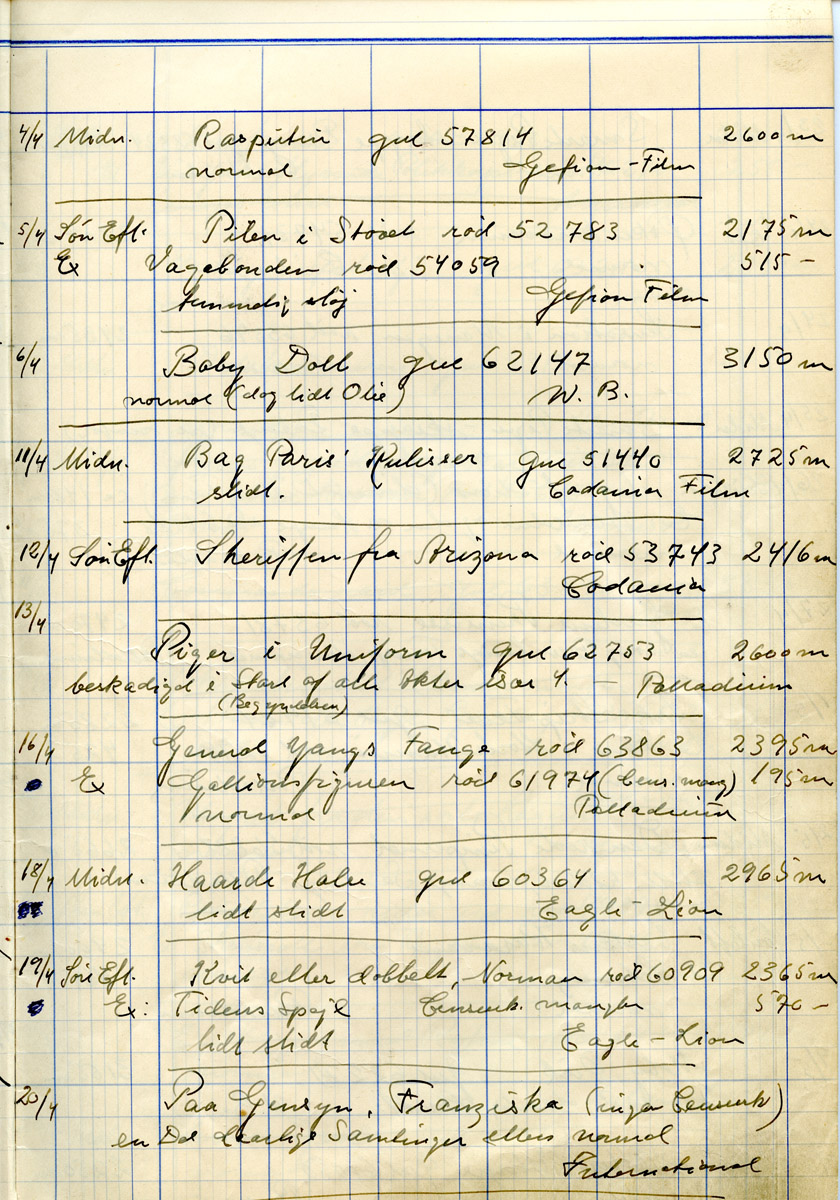 4/4 Midn. Rasputin gul 57814 2600 m
normal Gefion-Film
5/4 Søn Eft. Pilen i Støvet rød 52783 2175 m
Ex Vagabonden rød 54059 515 -
støj Gefion Film
6/4 Baby Doll gul 62147 3150 m
normal (dog lidt Olie) W. B.
11/4 Midn. Bag Paris' Kulisser gul 51440 2725 m
slidt. Codania Film
12/4 Søn Eft. Sheriffen fra Arizona rød 53743 2416 m
Codania
13/4
Piger i Uniform gul 62753 2600 m
beskadiget i Start af alle Akter især 4. — Palladium
(Begyndelsen)
16/4 General Yangs Fange rød 63863 2395 m
Ex Gallionsfiguren rød 61974 (Cens. mang) 195 m
normal Palladium
18/4 Midn. Haarde Halse gul 60364 2965 m
lidt slidt Eagle-Lion
19/4 Søn Eft. Kvit eller dobbelt, Norman rød 60909 2365 m
Ex: Tidens Spejl Censurk. mangler 570 -
lidt slidt Eagle-Lion
20/4 Paa Gensyn, Franziska (ingen Censurk)
en Del daarlige Samlinger ellers normal
International